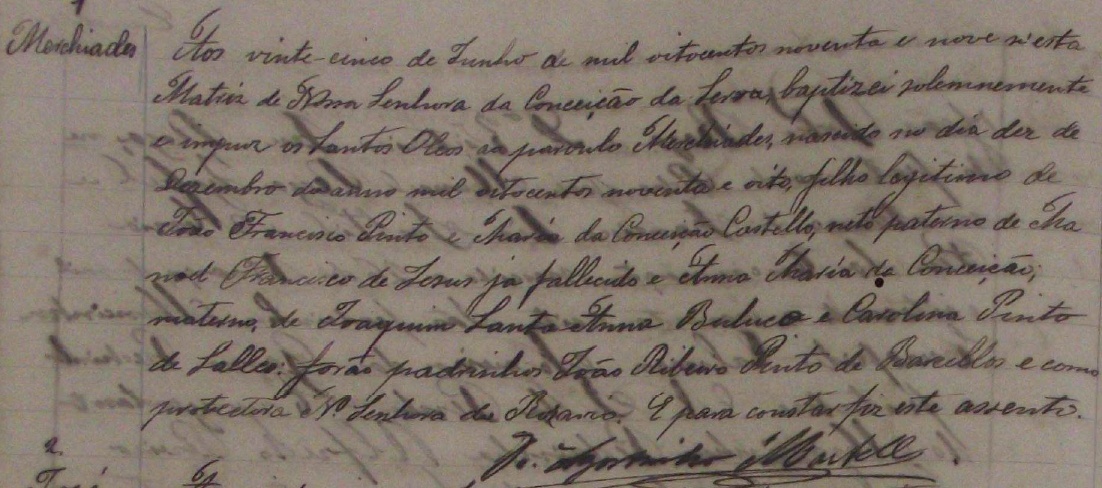 Merchiades
Aos vinte-cinco de Junho de mil oitocentos noventa e nove n'esta
Matriz de Nossa Senhora da Conceição da Serra, baptizei solemnemente
e impuz os Santos Oleos ao parvulo Merchiades, nascido no dia dez de
Dezembro do anno mil oitocentos noventa e oito, filho legitimo de
João Francisco Pinto e Maria da Conceição Castello, neto paterno de Ma
noel Francisco de Jesus já fallecido e Anna Maria da Conceição;
materno, de Joaquim Santa Anna Buluco e Carolina Pinto
de Salles: forão padrinhos João Ribeiro Pinto de Barcellos e como
protectora Nª Senhora do Rosario. E para constar fiz este assento.
Pe. Agostinho
2
José